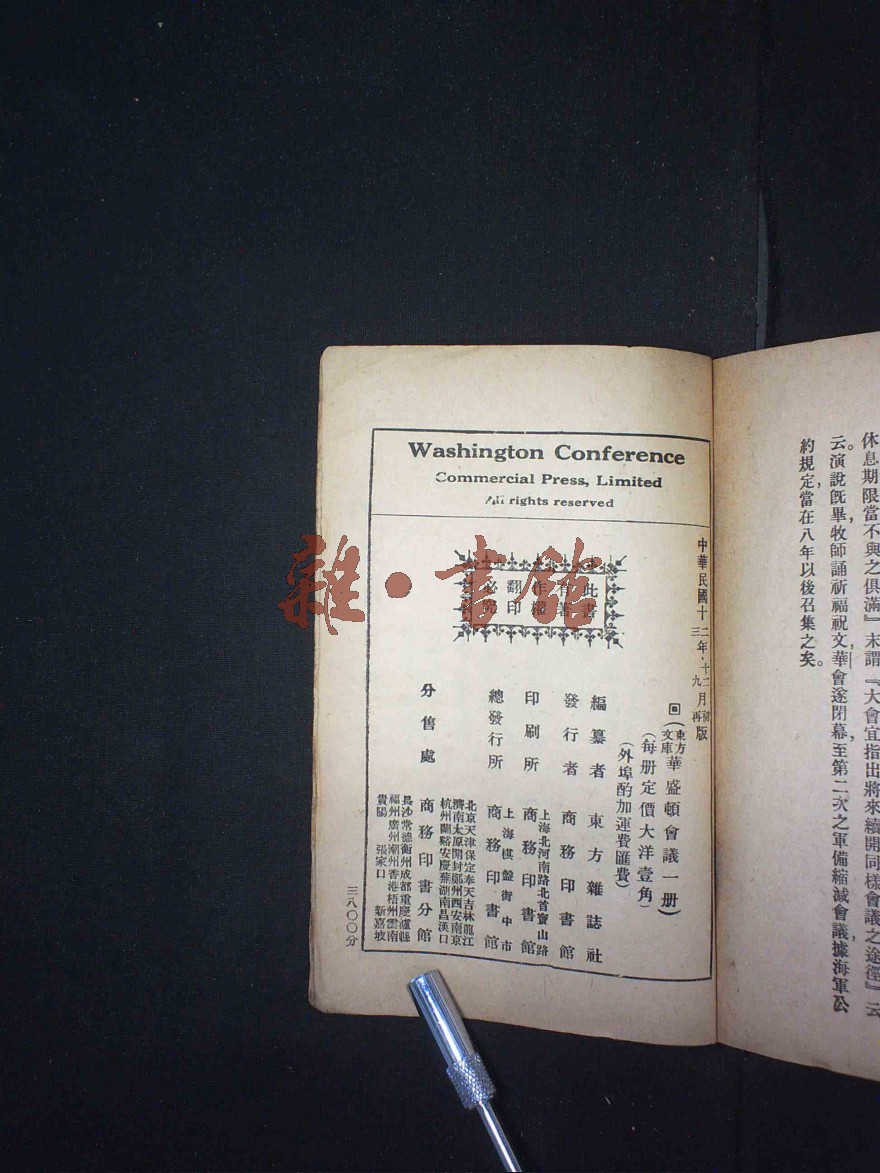 休息期限當不與之俱滿』末謂『大會宜指出將來續開同樣會議之途徑』云
云。演說旣畢，牧師誦祈福祝文，華會遂閉幕，至第二次之軍備縮減會議，據海軍公
約規定，當在八年以後召集之矣。
Washington Conference
Commercial Press, Limited
All rights reserved
此書
有著
作權
翻印
必究
中華民國十二年十二月初版
三年九月再版
回(東方文庫華盛頓會議一册)
(每册定價大洋壹角)
(外埠酌加運費匯費)
編纂者 東方雜誌社
發行者 商務印書館
上海北河南路北首寶山路
印刷所 商務印書館
上海棋盤街中市
總發行所 商務印書館
北京天津保定奉天吉林龍江
濟南太原開封鄭州西安南京
杭州蘭谿安慶蕪湖南昌漢口
分售處 商務印書分館
長沙常德衡州成都重慶瀘縣
福州廣州潮州香港梧州雲南
貴陽 張家口 新嘉坡
三八〇〇分
雜·書館